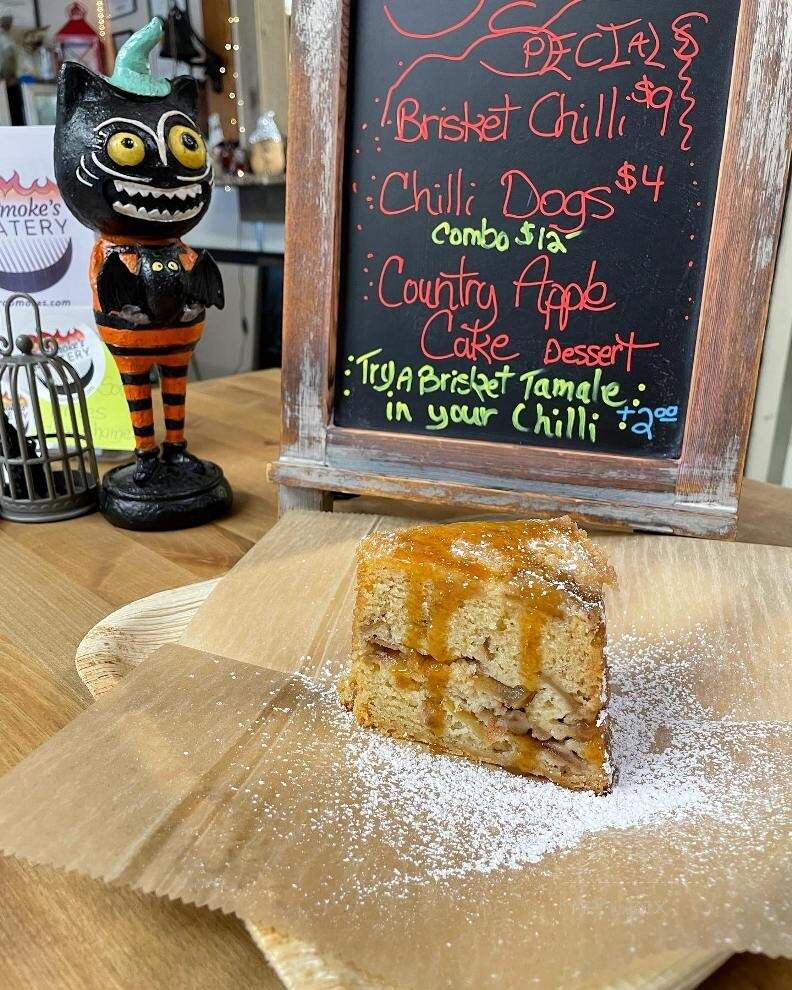 PECIALS
Brisket Chilli $9
Chilli Dogs $4
Combo $12
Country Apple
Cake Dessert
Try A Brisket Tamale
in your Chilli +2.00
moke's
ATERY